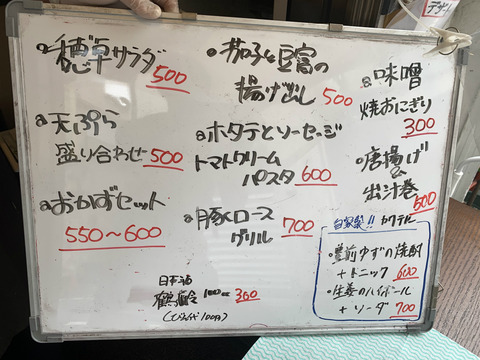 穂草サラダ
500
茄子と豆富の
揚げ出し 500
味噌
焼おにぎり
300
天ぷら
盛り合わせ 500
ホタテとソーセージ
トマトクリーム
パスタ 600
唐揚げ&
出汁巻
500
おかずセット
550〜600
豚ロース
グリル 700
自家製!! カクテル
豊前ゆずの焼酎
+トニック 600
生姜のハイボール
+ソーダ 700
日本酒
100cc 300